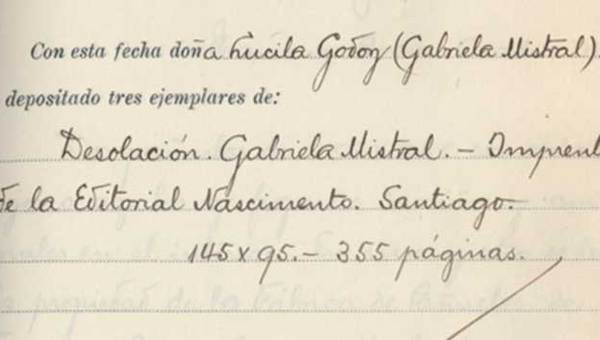 Con esta fecha doña Lucila Godoy (Gabriela Mistral)
depositado tres ejemplares de:
Desolación. Gabriela Mistral. – Imprent
de la Editorial Nascimento. Santiago.
145 x 95. – 355 páginas.